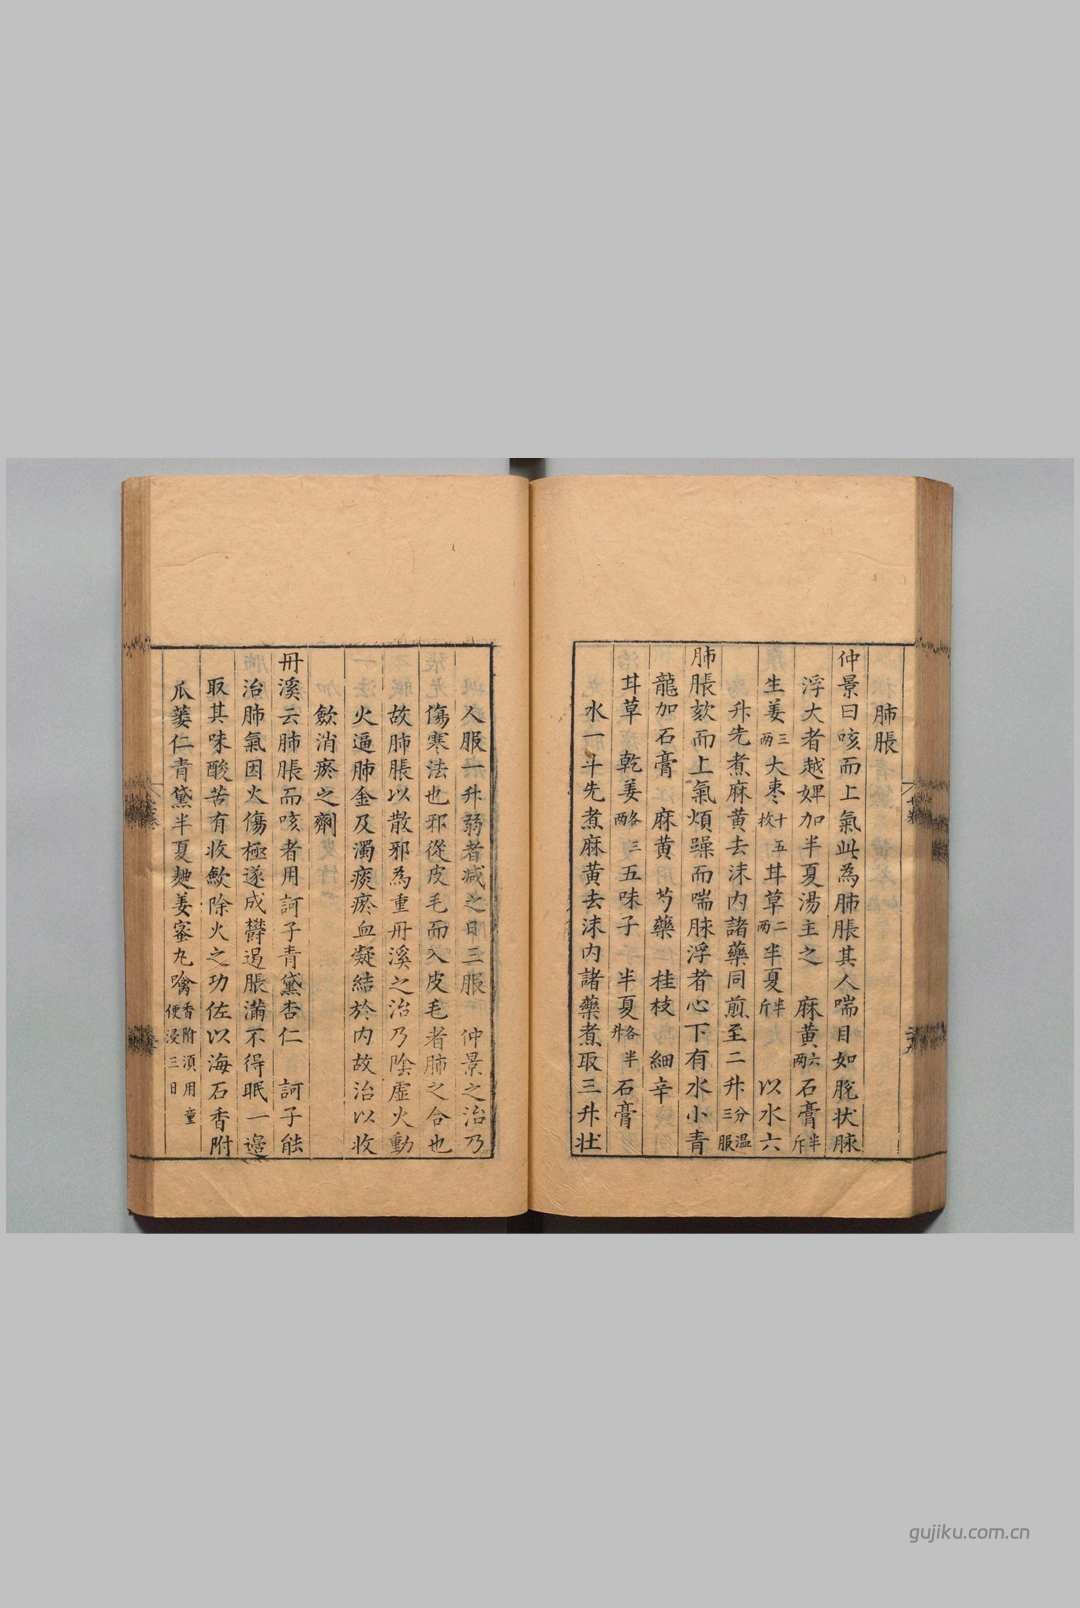 肺脹
仲景曰咳而上氣此為肺脹其人喘目如脫状脉
浮大者越婢加半夏湯主之　麻黄六两石膏半斤
生姜三两大枣十五枚甘草二两半夏半斤　以水六
升先煮麻黄去沫内諸藥同煎至二升分温三服
肺脹欬而上氣煩躁而喘脉浮者心下有水小青
龍加石膏　麻黄　芍藥　桂枝　細辛
甘草　乾姜各三两五味子　半夏各半升石膏
水一斗先煮麻黄去沫内諸藥煮取三升壮
人服一升弱者减之日三服　仲景之治乃
傷寒法也邪從皮毛而入皮毛者肺之合也
故肺脹以散邪為重丹溪之治乃陰虚火動
火逼肺金及濁痰瘀血凝結於内故治以收
歛消瘀之劑
丹溪云肺脹而咳者用訶子青黛杏仁　訶子能
治肺氣因火傷極遂成欝遏脹滿不得眠一邉
取其味酸苦有收歛除火之功佐以海石香附
瓜蔞仁青黛半夏麯姜蜜丸噙香附須用童便浸三日
gujiku.com.cn